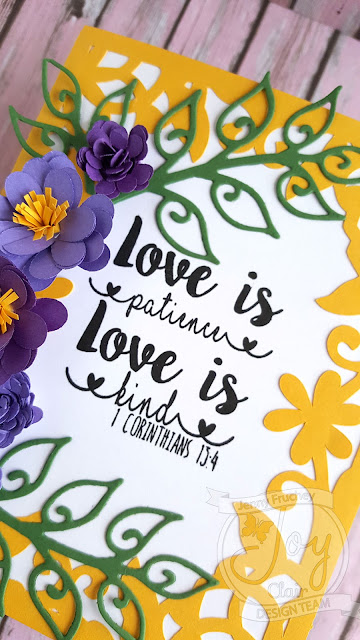 Love is
patience
Love is
kind
1 CORINTHIANS 13:4
Jenny Fruchey
Joy
Clair
DESIGN TEAM